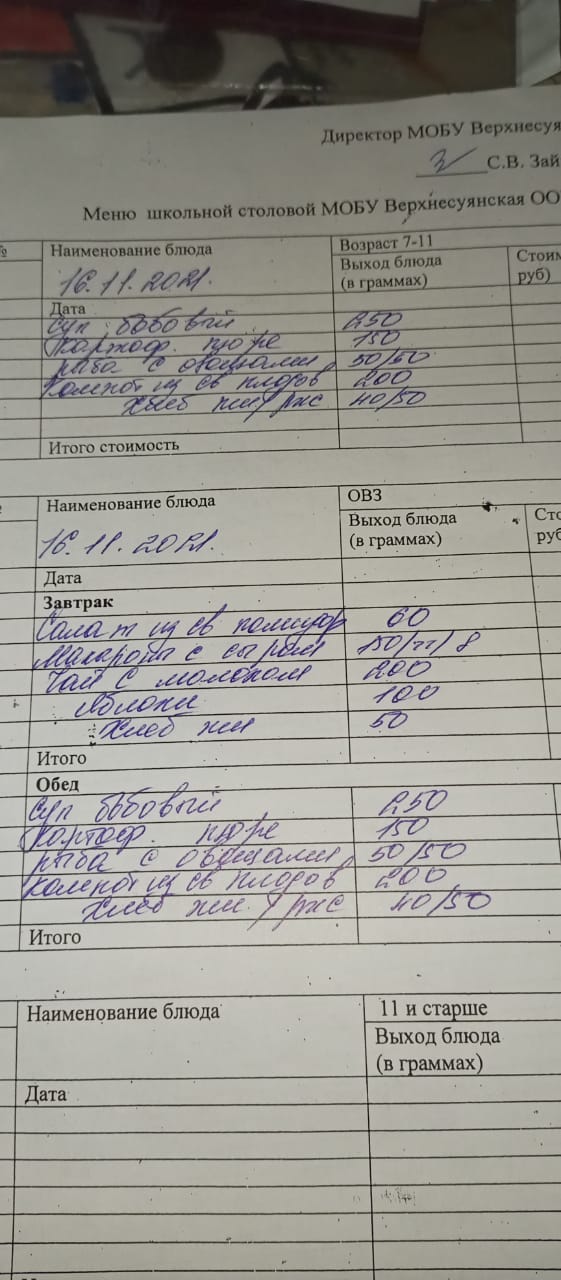 Директор МОБУ Верхнесуя
С.В. Зай
Меню школьной столовой МОБУ Верхнесуянская ОО
№ Наименование блюда Возраст 7-11
16.11.2021. Выход блюда (в граммах) Стоим руб)
Дата
Суп бобовый 250
Картоф. пюре 150
рыба с овощами 50/50
Компот из св плодов 200
Хлеб пш/ржс 40/50
Итого стоимость
Наименование блюда ОВЗ
16.11.2021. Выход блюда (в граммах) Сто руб
Дата
Завтрак
Салат из св помидор 60
Макароны с сыром 150/ /8
Чай с молоком 200
Яблоки 100
Хлеб пш 50
Итого
Обед
Суп бобовый 250
Картоф. пюре 150
рыба с овощами 50/50
Компот из св плодов 200
Хлеб пш./ржс 40/50
Итого
Наименование блюда 11 и старше
Выход блюда
(в граммах)
Дата